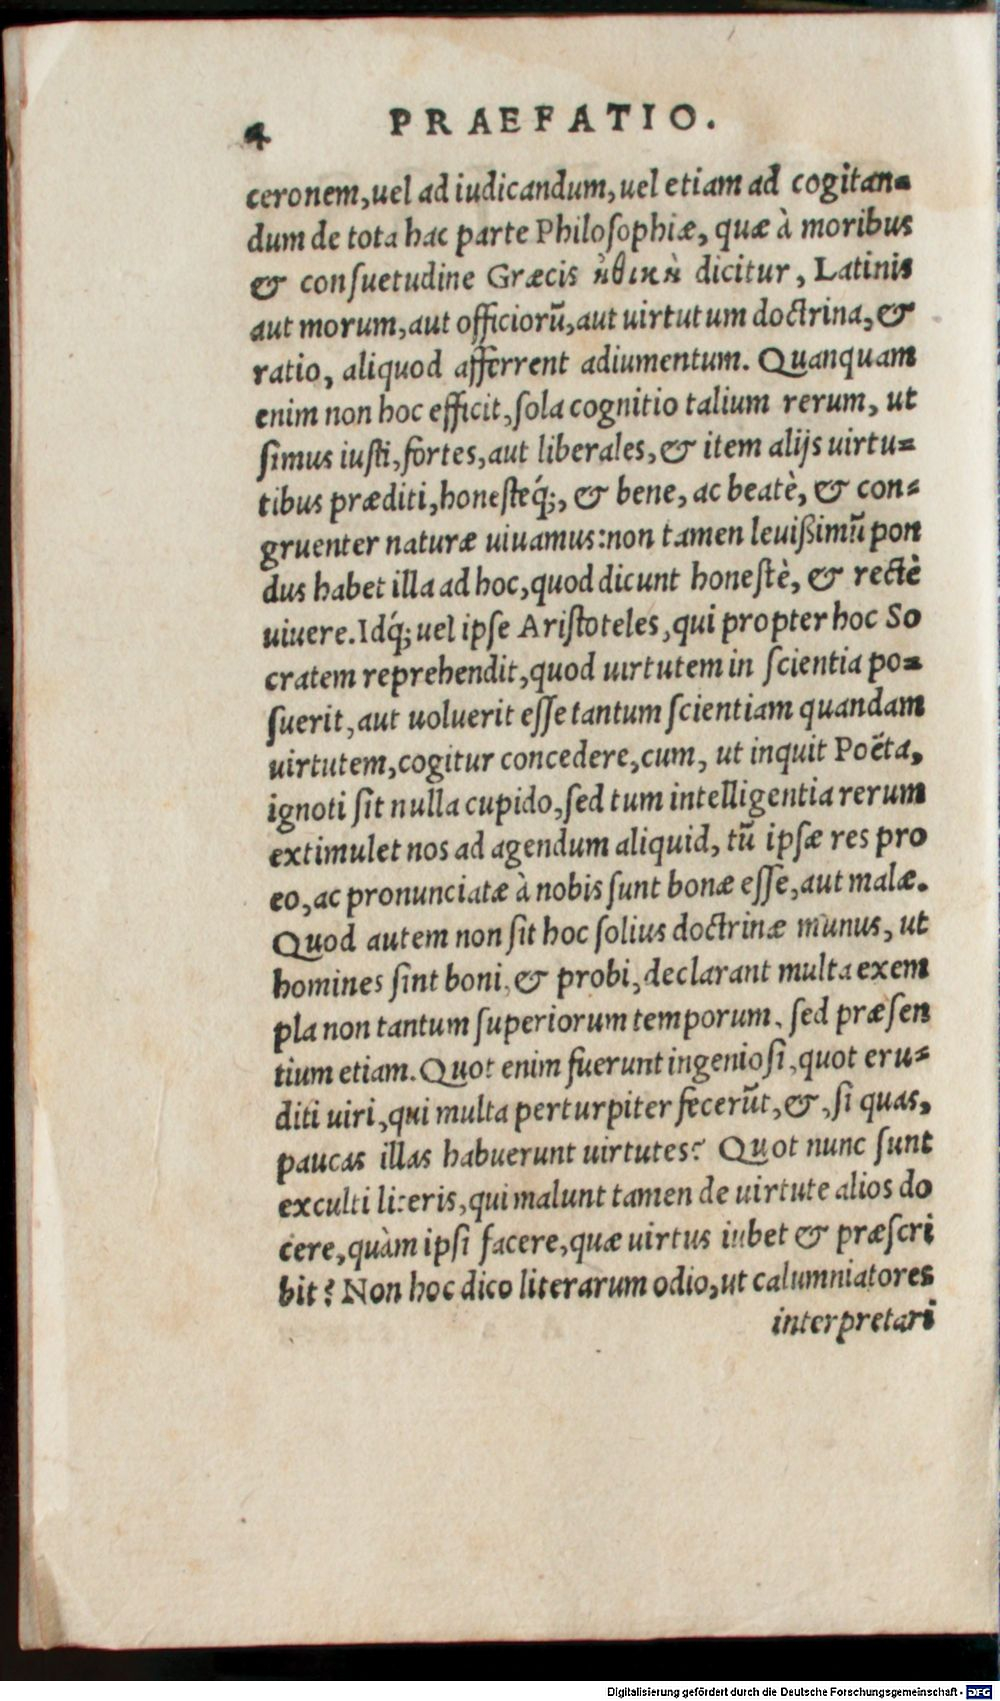 4 PRAEFATIO.
ceronem, uel ad iudicandum, uel etiam ad cogitan=
dum de tota hac parte Philoſophiæ, quæ à moribus
& conſuetudine Græcis ἠθικὴ dicitur, Latinis
aut morum, aut officiorũ, aut uirtutum doctrina, &
ratio, aliquod afferrent adiumentum. Quanquam
enim non hoc efficit, ſola cognitio talium rerum, ut
ſimus iuſti, fortes, aut liberales, & item alijs uirtu=
tibus præditi, honeſteq́;, & bene, ac beatè, & con=
gruenter naturæ uiuamus: non tamen leuißimũ pon
dus habet illa ad hoc, quod dicunt honeſtè, & rectè
uiuere. Idq́; uel ipſe Ariſtoteles, qui propter hoc So
cratem reprehendit, quod uirtutem in ſcientia po=
ſuerit, aut uoluerit eſſe tantum ſcientiam quandam
uirtutem, cogitur concedere, cum, ut inquit Poëta,
ignoti ſit nulla cupido, ſed tum intelligentia rerum
extimulet nos ad agendum aliquid, tũ ipſæ res pro
eo, ac pronunciatæ à nobis ſunt bonæ eſſe, aut malæ.
Quod autem non ſit hoc ſolius doctrinæ munus, ut
homines ſint boni, & probi, declarant multa exem
pla non tantum ſuperiorum temporum, ſed præſen
tium etiam. Quot enim fuerunt ingenioſi, quot eru=
diti uiri, qui multa perturpiter fecerũt, &, ſi quas,
paucas illas habuerunt uirtutes? Quot nunc ſunt
exculti literis, qui malunt tamen de uirtute alios do
cere, quàm ipſi facere, quæ uirtus iubet & præſcri
bit? Non hoc dico literarum odio, ut calumniatores
interpretari
Digitalisierung gefördert durch die Deutsche Forschungsgemeinschaft - DFG